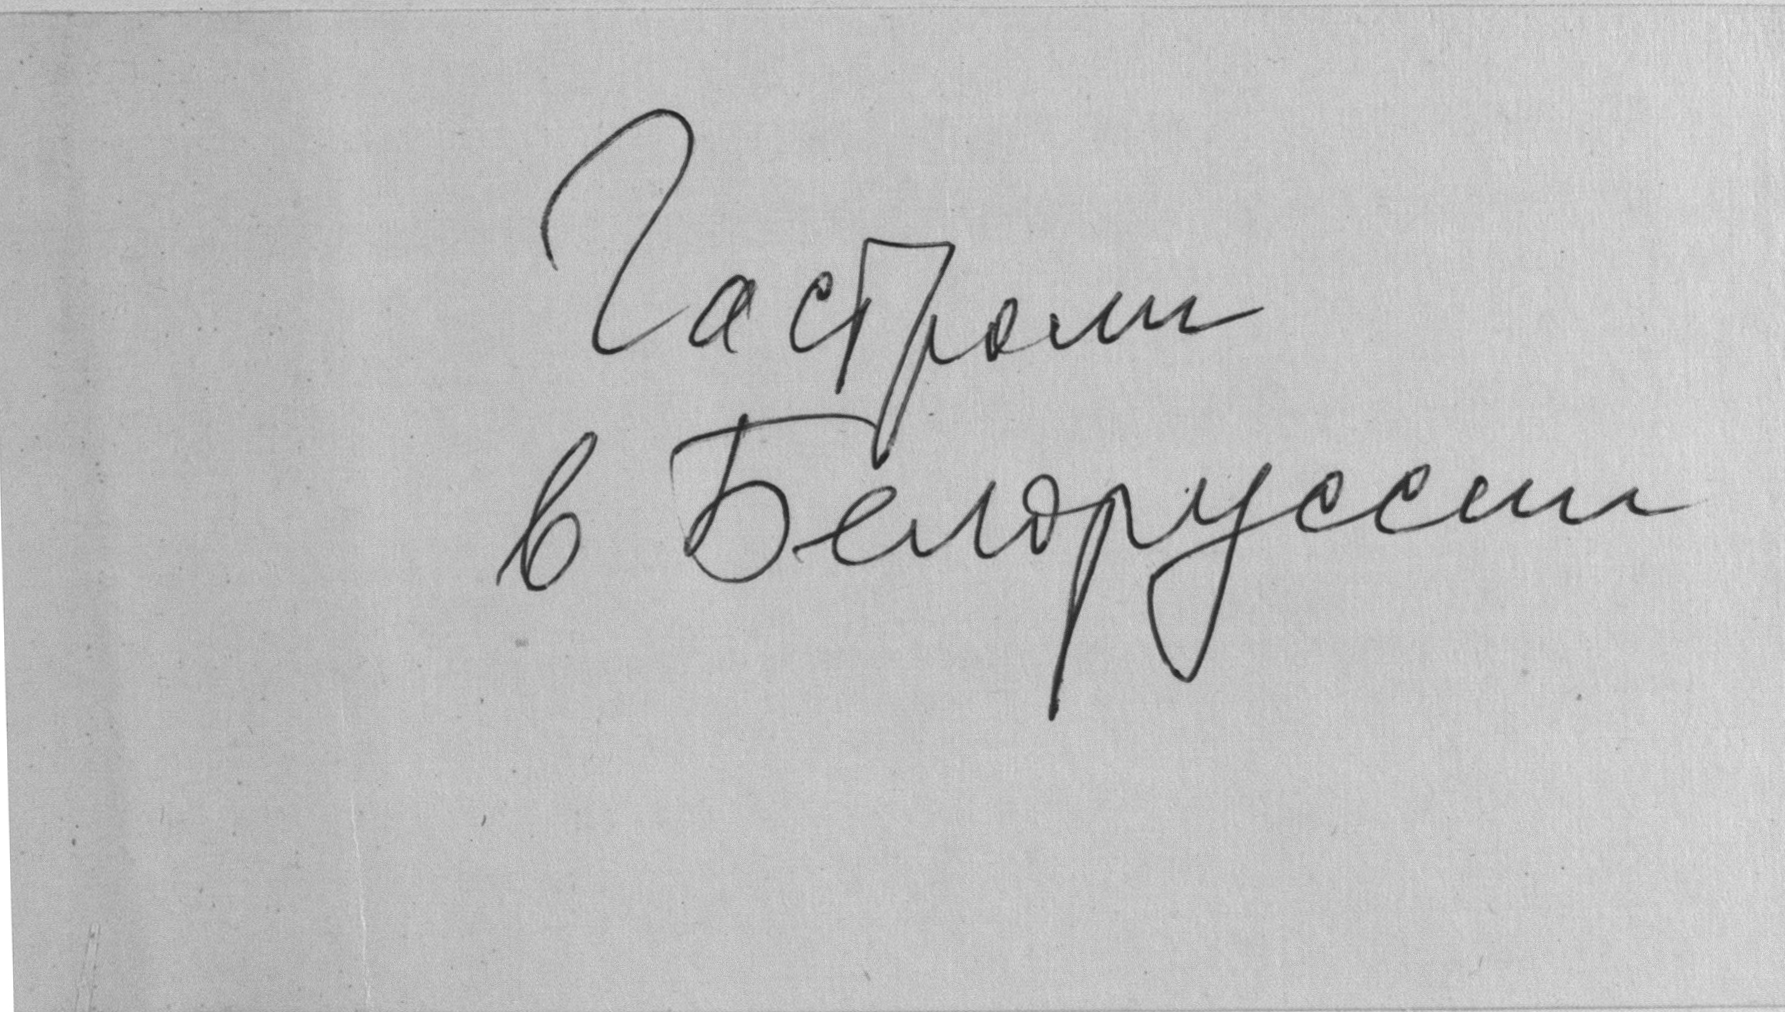 Гастроли
в Белоруссии